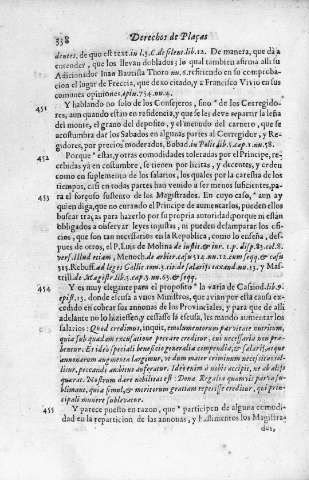 338 Derechos de Plaças
dentes, de que es text. in l. 5. C. de silent. lib. 12. De manera, que dà a
entender, que los llevan doblados; lo qual tambien afirma alli su
Adicionador Iuan Bautista Thoro nu. 5. refiriendo en su comproba-
cion el lugar de Freccia, que dexo citado, y a Francisco Vivio en sus
comunes opiniones, opin. 734. nu. 4.
451 Y hablando no solo de los Consejeros, sino * de los Corregido-
res, aun quando estàn en residencia, y que se les deve repartir la leña
del monte, el grano del deposito, y el menudo del carnero, que se
acostumbra dar los Sabados en algunas partes al Corregidor, y Re-
gidores, por precios moderados, Bobad. in Polit. lib. 5. cap. 1. nu. 58.
452 Porque * estas, y otras comodidades toleradas por el Principe, re-
cebidas ya en costumbre, se tienen por licitas, y decentes, y ceden
como en suplemento de los salarios, los quales por la carestia de los
tiempos, casi en todas partes han venido a ser menos suficientes, pa-
453 ra el forçoso sustento de los Magistrados. En cuyo caso, * aun ay
quien diga, que no curando el Principe de aumentarlos, pueden ellos
buscar traças para hazerlo por su propria autoridad, porque ni estàn
obligados a observar leyes injustas, ni pueden desamparar los ofi-
cios, que son tan necessarios en la Republica, como lo enseña, des-
pues de otros, el P. Luis de Molina de iustit. & iur. 1. p. disp. 83. col. 8.
vers. Illud etiam, Menoch. de arbitr. casu 514. nu. 12. cum seqq. & casu
515. Rebuff. ad leges Galliæ tom. 3. tit. de salarijs taxand. nu. 13. y Mas-
trill. de Magistr. lib. 5. cap. 3. nu. 65. & seqq.
454 Y es muy elegante para el proposito * la varia de Casiod. lib. 9.
epist. 13. donde escusa a unos Ministros, que avian por esta causa ex-
cedido en cobrar las annonas de los Provinciales, y para que de alli
adelante no lo hiziessen, y cessasse la escusa, les mandò aumentar los
salarios: Quod credimus, inquit, emolumentorum parvitate nutritum,
quia sub quadam excusatione peccare creditur, cui necessaria non præ-
bentur. Et ideò speciali beneficio generalia compendia, & salariæ atque
annonarum augmenta largimur, ut dum mater criminum necessitas tol-
litur, peccandi ambitus auferatur. Ideò enim à nobis accipit, ne ab alijs
quærat. Nostrum dare nobilitas est: Dona Regalia quamvis parva su-
blimant, quia simul, & meritorum gratiam reperisse creditur, qui prin-
cipali munere sublevatur.
455 Y parece puesto en razon, que * participen de alguna comodi-
dad en la reparticion de las annonas, y bastimentos los Magistra-
dos,